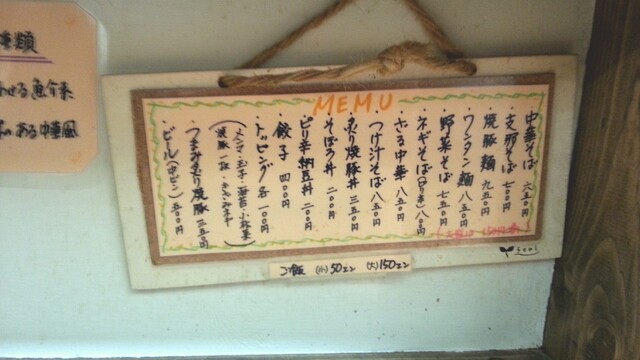 種類
わせる魚介系
ある中華風
MEMU
・中華そば 六五〇円
・支那そば 七〇〇円
・焼豚麺 九五〇円
・ワンタン麺 八五〇円
・野菜そば 七五〇円
・ネギそば 八〇〇円
・ざる中華 八五〇円
・つけ汁そば 八五〇円
・炙り焼豚丼 三五〇円
・そぼろ丼 二〇〇円
・ピリ辛納豆丼 二〇〇円
・餃子 四〇〇円
・トッピング 各一〇〇円
(メンマ・玉子・海苔・小松菜
焼豚一枚・きざみネギ)
・つまみ炙り焼豚 三五〇円
・ビール(中ビン) 五〇〇円
ご飯 (小)50エン (大)150エン